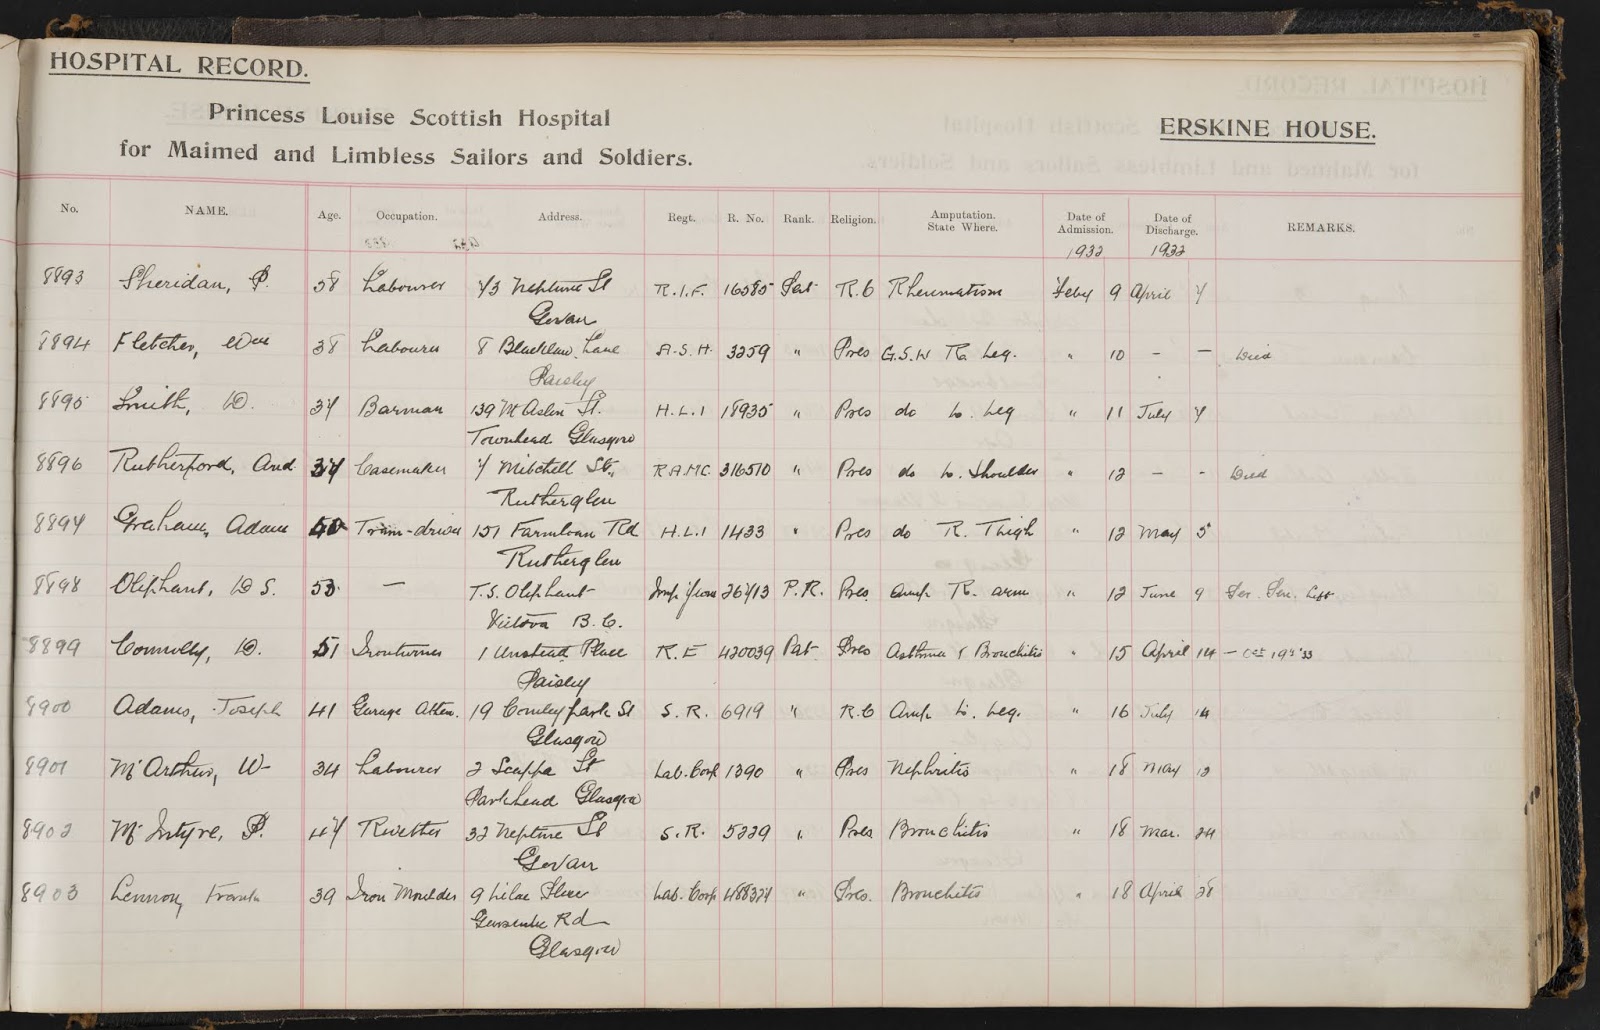 HOSPITAL RECORD.
Princess Louise Scottish Hospital
for Maimed and Limbless Sailors and Soldiers.
ERSKINE HOUSE.
No. NAME. Age. Occupation. Address. Regt. R. No. Rank. Religion. Amputation. State Where. Date of Admission. Date of Discharge. REMARKS.
1932 1932
8893 Sheridan, P. 58 Labourer 73 Neptune St R.I.F. 16585 Pat R.C Rheumatism Feby 9 April 7
Govan
8894 Fletcher, Wm 38 Labourer 8 Blacklaw Lane A.S.H. 3259 " Pres G.S.W R. Leg. " 10 - - Died
Paisley
8895 Smith, D. 37 Barman 139 McAslin St. H.L.I 18935 " Pres do L. Leg " 11 July 7
Townhead Glasgow
8896 Rutherford, And 37 Casemaker 7 Mitchell St., R.A.M.C. 316510 " Pres do L. Shoulder " 12 - - Died
Rutherglen
8897 Graham, Adam 50 Tram-driver 151 Farmloan Rd H.L.I 1433 " Pres do R. Thigh " 12 May 5
Rutherglen
8898 Oliphant, D S. 53 - T.S. Oliphant 26713 P.R. Pres Amp R. arm " 12 June 9
Victora B.C.
8899 Connolly, D. 51 Ironturner 1 Unstead Place R.E 420039 Pat Pres Asthma & Bronchitis " 15 April 14
Paisley
8900 Adams, Joseph 41 Garage Atten. 19 Comleypark St S.R. 6919 " R.C Amp L. Leg. " 16 July 14
Glasgow
8901 McArthur, W 34 Labourer 2 Scappa St Lab. Corp 1390 " Pres Nephritis " 18 May 12
Parkhead Glasgow
8902 McIntyre, P. 47 Rivetter 32 Neptune St S.R. 5229 " Pres Bronchitis " 18 Mar. 24
Govan
8903 Lennon, Frank 39 Iron Moulder 9 Lilac Place Lab. Corp 488374 " Pres. Bronchitis " 18 April 28
Rd
Glasgow